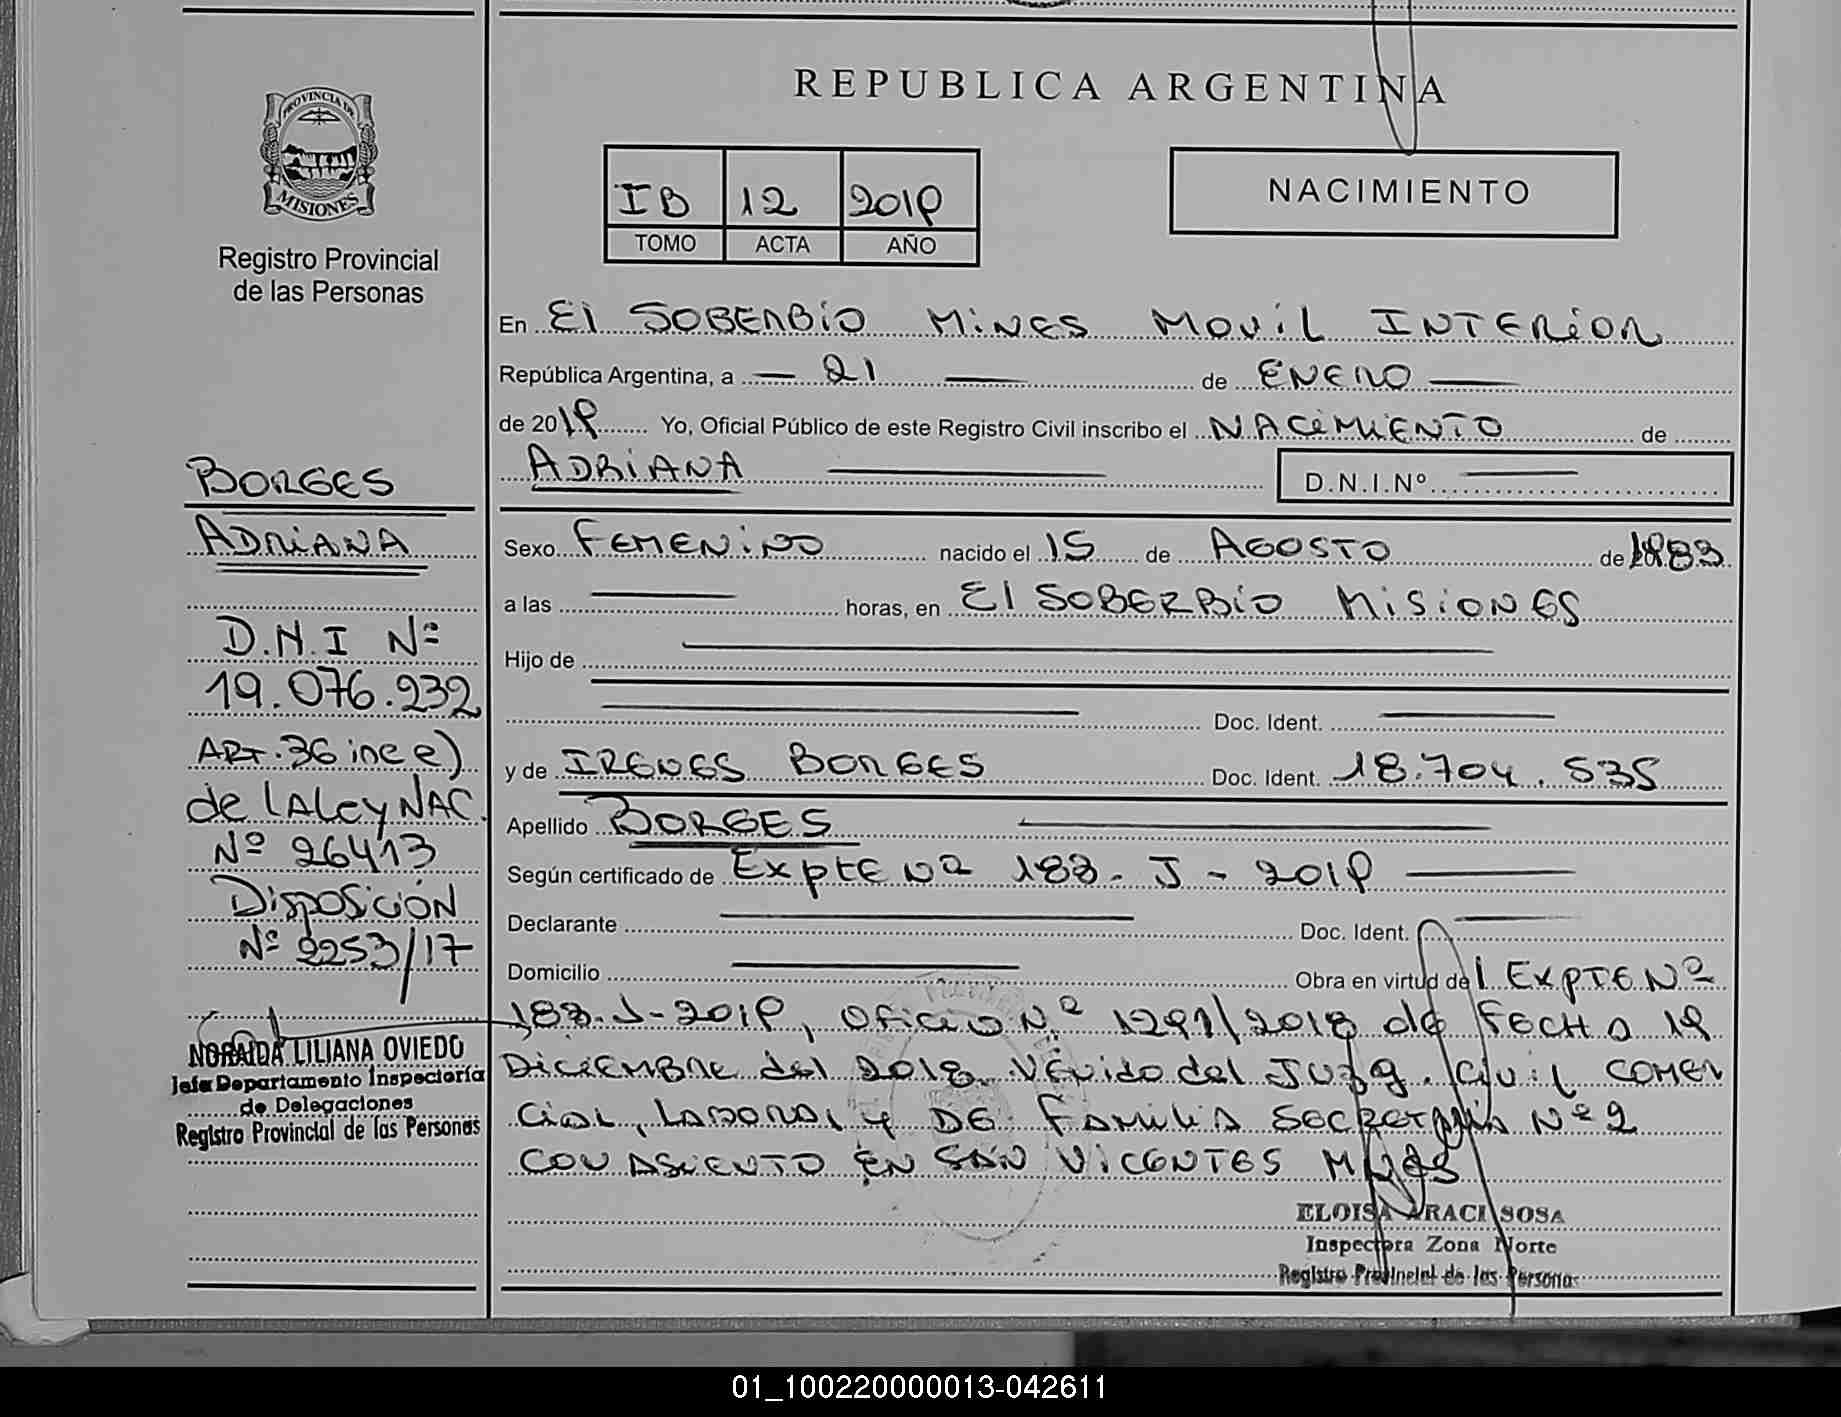 PROVINCIA DE
MISIONES
Registro Provincial
de las Personas
REPUBLICA ARGENTINA
IB 12 2019
TOMO ACTA AÑO
NACIMIENTO
En El SOBERBIO MiNES MOVIL INTERIOR
República Argentina, a 21 de ENERO
de 2019 Yo, Oficial Público de este Registro Civil inscribo el NACIMIENTO de
ADRIANA D.N.I.Nº
Sexo FEMENINO nacido el 15 de AGOSTO de 1983
a las horas, en El SOBERBIO MISIONES
Hijo de
Doc. Ident.
y de IRENES BORGES Doc. Ident. 18.704.535
Apellido BORGES
Según certificado de EXPTE Nº 183-J-2019
Declarante Doc. Ident.
Domicilio Obra en virtud del EXPTE Nº
183-J-2019, OFICIO Nº 1291/2018 de FECHA 19
DICIEMBRE del 2018 VENido del JUZG. CiViL COMER
CiAL, LABORAL Y DE FAMiLiA SECRETARIA Nº 2
CON ASIENTO EN SAN VICENTES MNES
ELOISA ARACI SOSA
Inspectora Zona Norte
Registro Provincial de las Personas
BORGES
ADRIANA
D.N.I Nº
19.076.232
ART. 36 inc e)
de lA ley NAC.
Nº 26413
DisposiCiÓN
Nº 2253/17
NORAIDA LILIANA OVIEDO
Jefa Departamento Inspectoría
de Delegaciones
Registro Provincial de las Personas
01_100220000013-042611